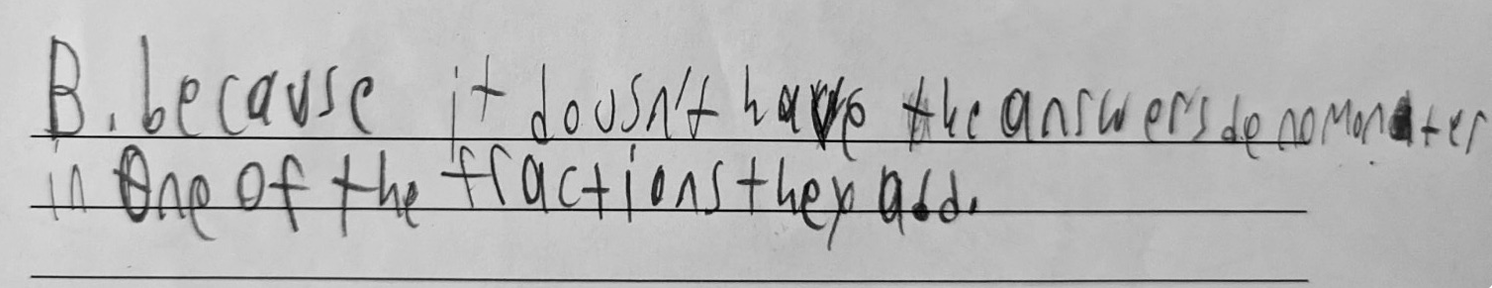 B. because it dousn't have the answers denomonater
in One of the fractions they add.